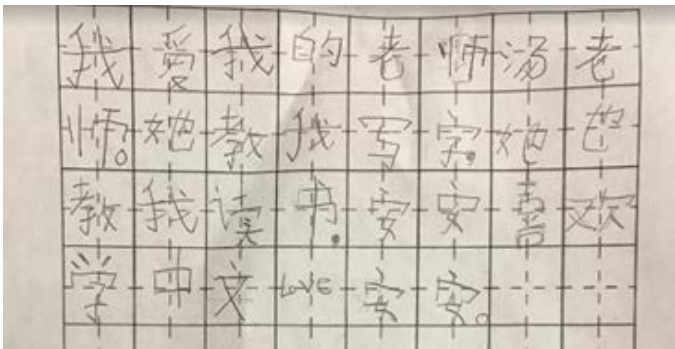 我爱我的老师汤老
师。她教我写字。她也
教我读书。安安喜欢
学中文love安安。